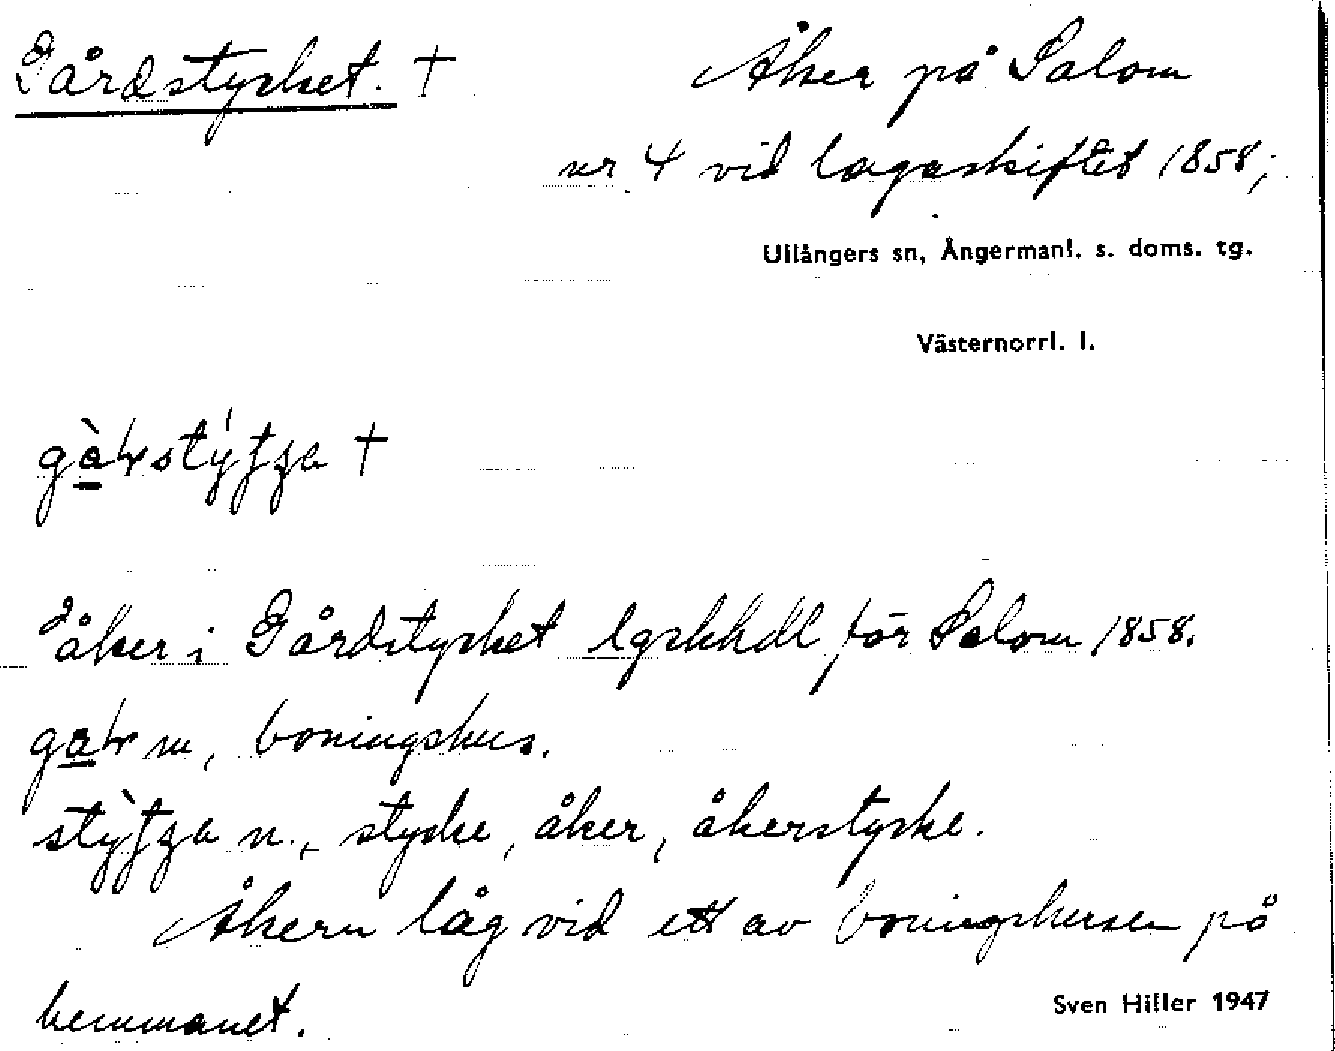 Gårdstycket. †
Åker på Salom
nr 4 vid lagaskiftet 1858;
Ullångers sn, Ångermanl. s. doms. tg.
Västernorrl. l.
†
åker i Gårdstycket lgskhdl för Salom 1858.
m, boningshus.
n., stycke, åker, åkerstycke.
Åkern låg vid ett av boningshusen på
hemmanet.
Sven Hiller 1947